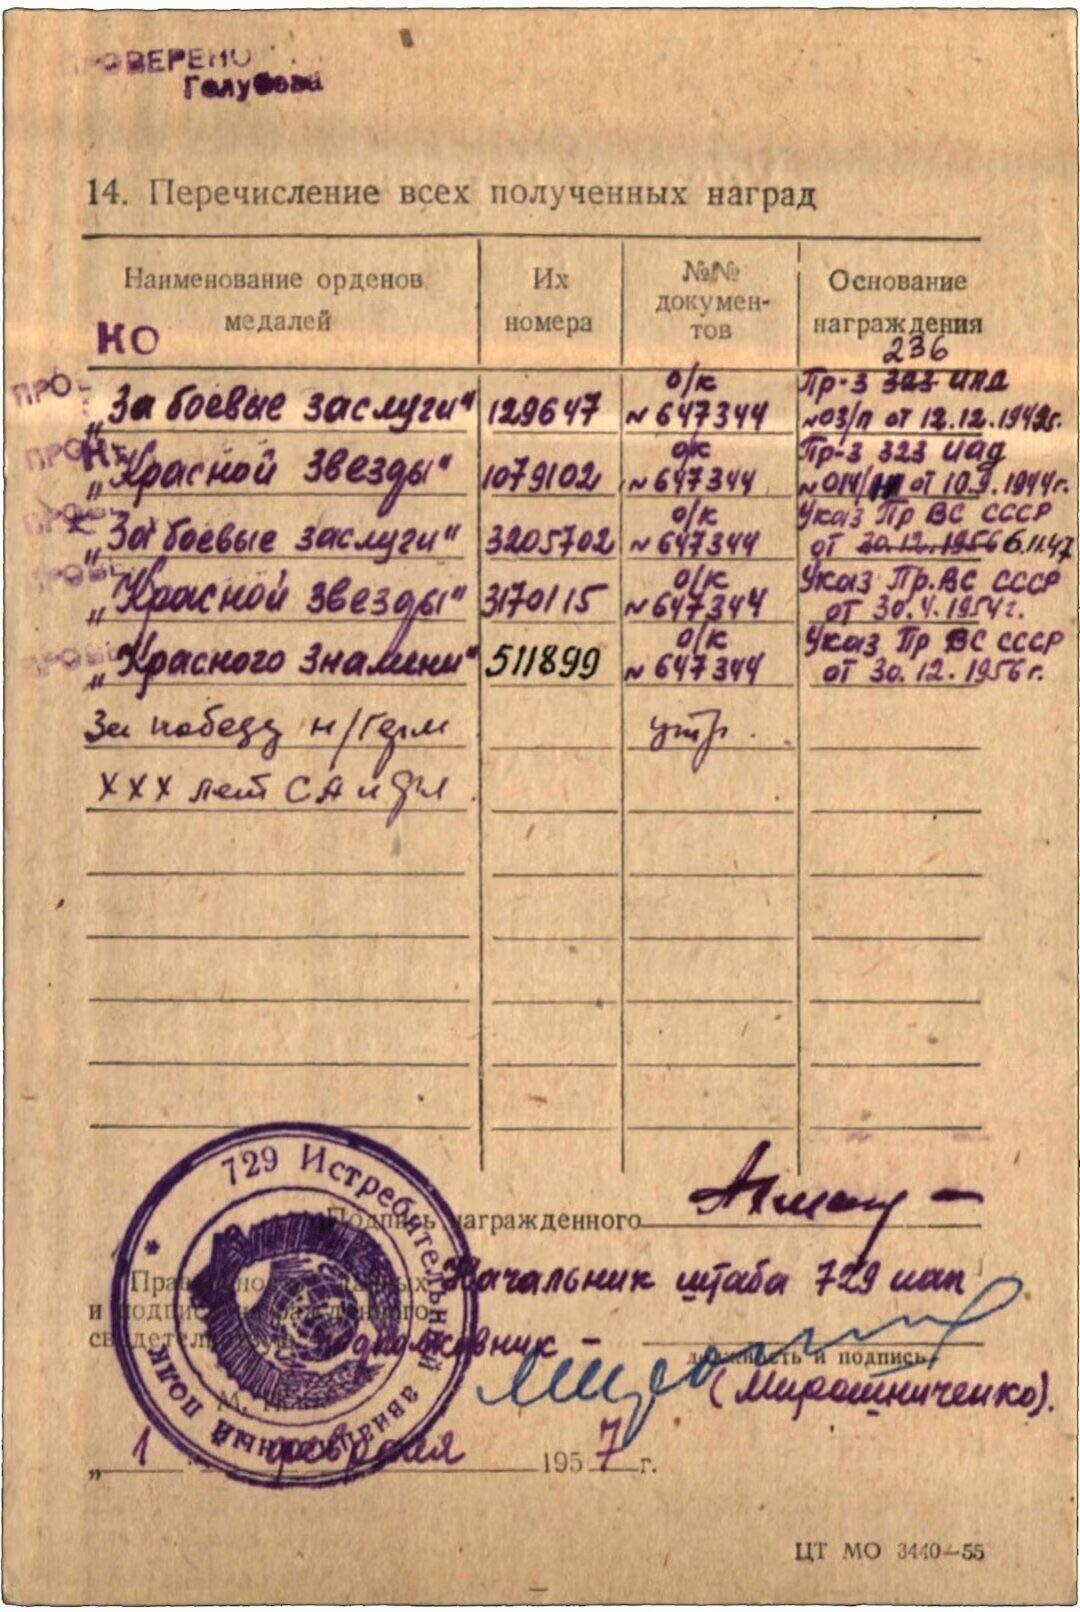 ПРОВЕРЕНО
Голубева
14. Перечисление всех полученных наград
Наименование орденов медалей
Их номера
№№ документов
Основание награждения
НО
236
ПРО
„За боевые заслуги“ 129647 о/к №647344 Пр-з 323 иад №03/п от 12.12.1942г.
„Красной Звезды“ 1079102 о/к №647344 Пр-з 323 иад №014/н от 10.9.1944г.
„За боевые заслуги“ 3205702 о/к №647344 Указ Пр ВС СССР от 30.12.1956 6.11.47
„Красной Звезды“ 3170115 о/к №647344 Указ Пр.ВС СССР от 30.4.1954г.
„Красного Знамени“ 511899 о/к №647344 Указ Пр ВС СССР от 30.12.1956г.
За победу н/Герм утр.
XXX лет СА и
729 Истребительный авиационный полк
Подпись награжденного
Правильность данных
и подпись награжденного
свидетельствую
Начальник штаба 729 иап
подполковник –
должность и подпись
(Мирошниченко).
М.
„ 1 “ февраля 1957 г.
ЦТ МО 3440—55